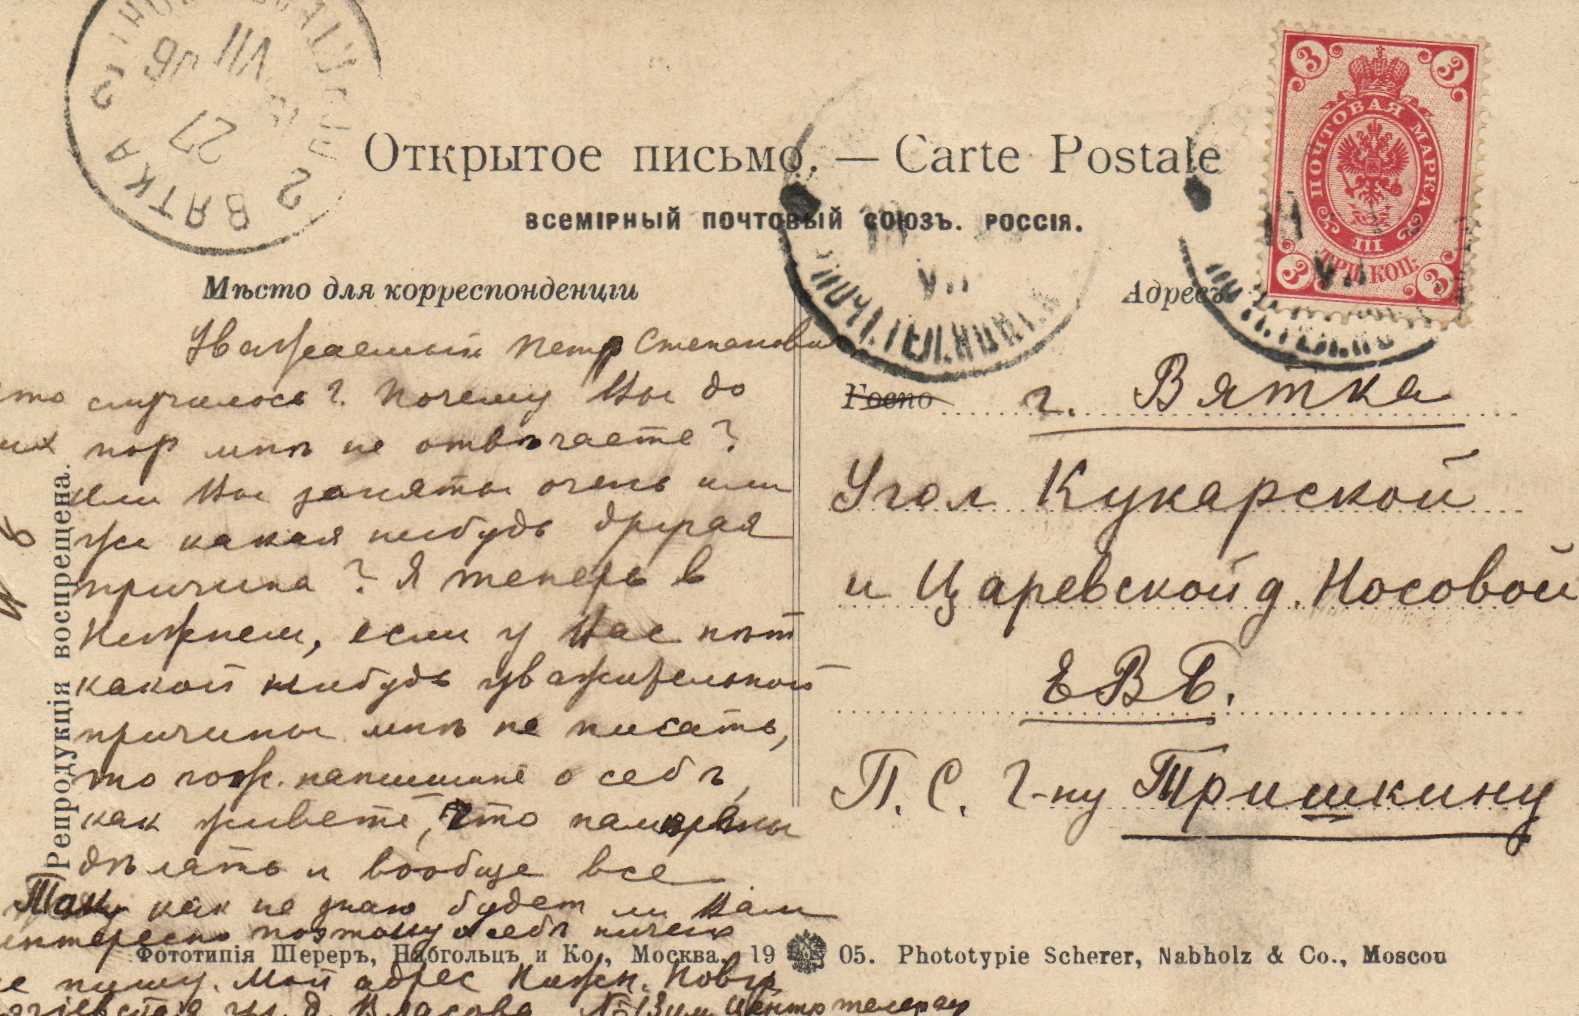 ВЯТКА 2
27
VII 06
Открытое письмо. — Carte Postale
ВСЕМІРНЫЙ ПОЧТОВЫЙ СОЮЗЪ. РОССІЯ.
3 3
ПОЧТОВАЯ МАРКА
III
ТРИ КОП.
3 3
19
VII
Мѣсто для корреспонденціи
Адресъ
Уважаемый Петр Степанович
что случилось? Почему Вы до
сих пор мнѣ не отвѣчаете?
Или Вы заняты очень или
же какая нибудь другая
причина? Я теперь в
Нижнем, если у Вас нѣт
какой нибудь уважительной
причины мнѣ не писать,
то пож. напишите о себѣ,
как живете, что намѣрены
дѣлать и вообще все
Так как не знаю будет ли Вам
интересно поэтому о себѣ ничего
не пишу. Мой адрес Нижн. Новг.
ул. д. Власова №13
Госпо
г. Вятка
Угол Кукарской
и Царевской д. Носовой
ЕВБ.
П. С. Г-ну Тришкину
Репродукція воспрещена.
Фототипія Шереръ, Набгольцъ и Ко., Москва. 19 05. Phototypie Scherer, Nabholz & Co., Moscou